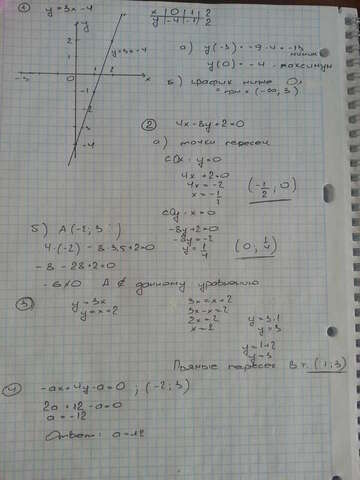 ① y=3x-4
x | 0 | 1 | 2
y | -4 | -1 | 2
y
2
1
y=3x-4
-3
0
1
2
x
-1
-2
-3
-4
а) y(-3) = -9-4 = -13
y(0) = -4 - максимум
Б) график ниже Ox
② 4x-8y+2=0
а) точки пересеч
cOx - y=0
4x+2=0
4x=-2
(-1/2, 0)
cOy - x=0
-8y+2=0
-8y=-2
y=1/4
(0; 1/4)
Б) A(-2; 3
4·(-2) - 8·3,5+2=0
-8-28+2=0
A ∉ данному уравнению
③ y=3x
y=x+2
3x=x+2
3x-x=2
2x=2
y=3·1
y=3
y=1+2
y=3
Прямые пересек в т. (1;3)
④ -ax+4y-a=0 ; (-2;3)
2a+12-a=0
a=-12
Ответ: a=-12